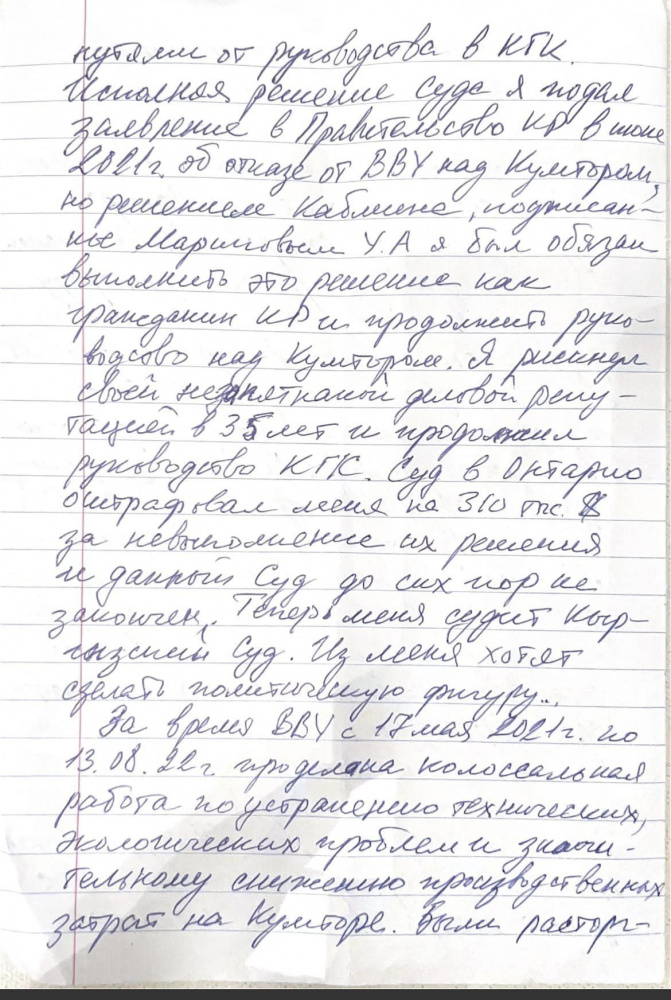 путями от руководства в КГК.
Исполняя решение Суда я подал
заявление в Правительство КР в июне
2021г. об отказе от ВВУ над Кумтором,
но решением Кабмина, подписан-
ные Мариповым У.А я был обязан
выполнить это решение как
гражданин КР и продолжить руко-
водсво над Кумтором. Я рискнул
своей незапятнаной деловой репу-
тацией в 35 лет и продолжил
руководство КГК. Суд в Онтарио
оштрафовал меня на 310 тыс. $
за невыполнение их решения
и данный Суд до сих пор не
закончен. Теперь меня судит Кыр-
гызский Суд. Из меня хотят
сделать политическую фигуру...
За время ВВУ с 17 мая 2021г. по
13.08.22г. проделана колоссальная
работа по устранению технических,
экологических проблем и значи-
тельному снижению производственных
затрат на Кумторе. Были расторг-